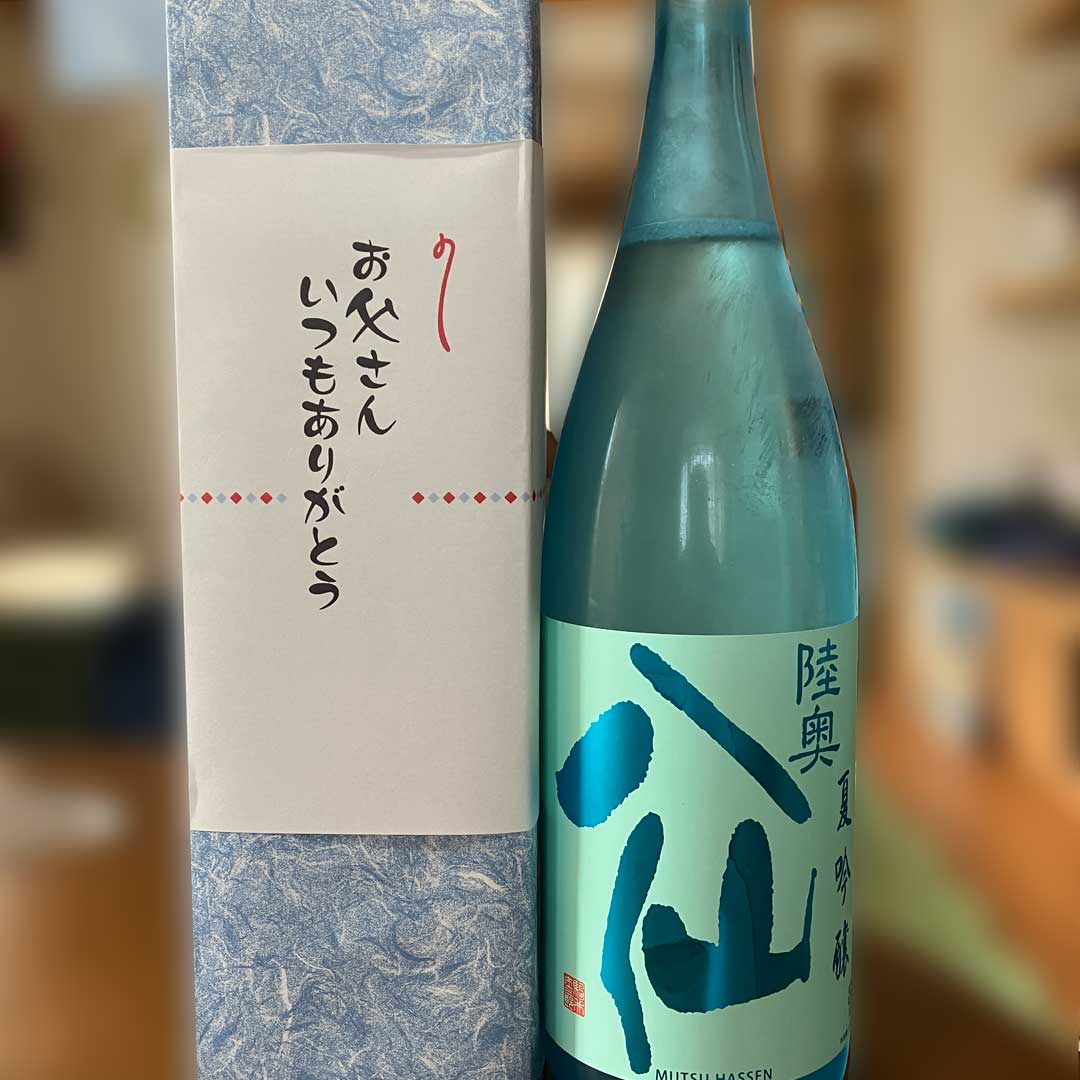 お父さん
いつもありがとう
陸奥
八仙
夏吟醸
MUTSU HASSEN